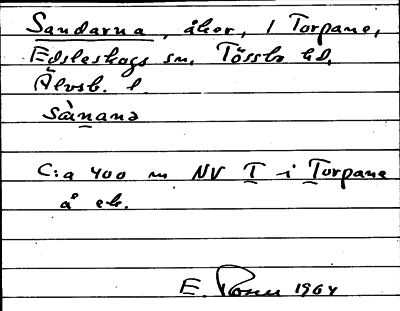 Sandarna, åker, / Torpane,
Edsleskogs sn, Tössbo hd,
Älvsb. l.
sànanə
C:a 400 m NV T i Torpane
å ek.
E. 1964